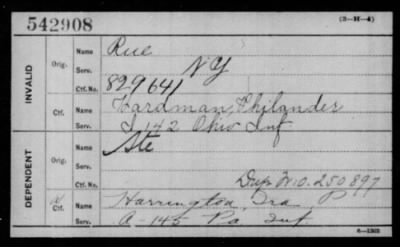 542908
(3-H-4)
INVALID
Orig.
Name Rue
Serv. NY
Ctf. No. 829641
Ctf.
Name Hardman, Philander
Serv. I 142 Ohio Inf
DEPENDENT
Orig.
Name Ste
Serv.
Ctf. No. Dup W.O. 250897
Ctf.
Name Harrington, Ira P
Serv. A-145 Pa Inf
6-1303